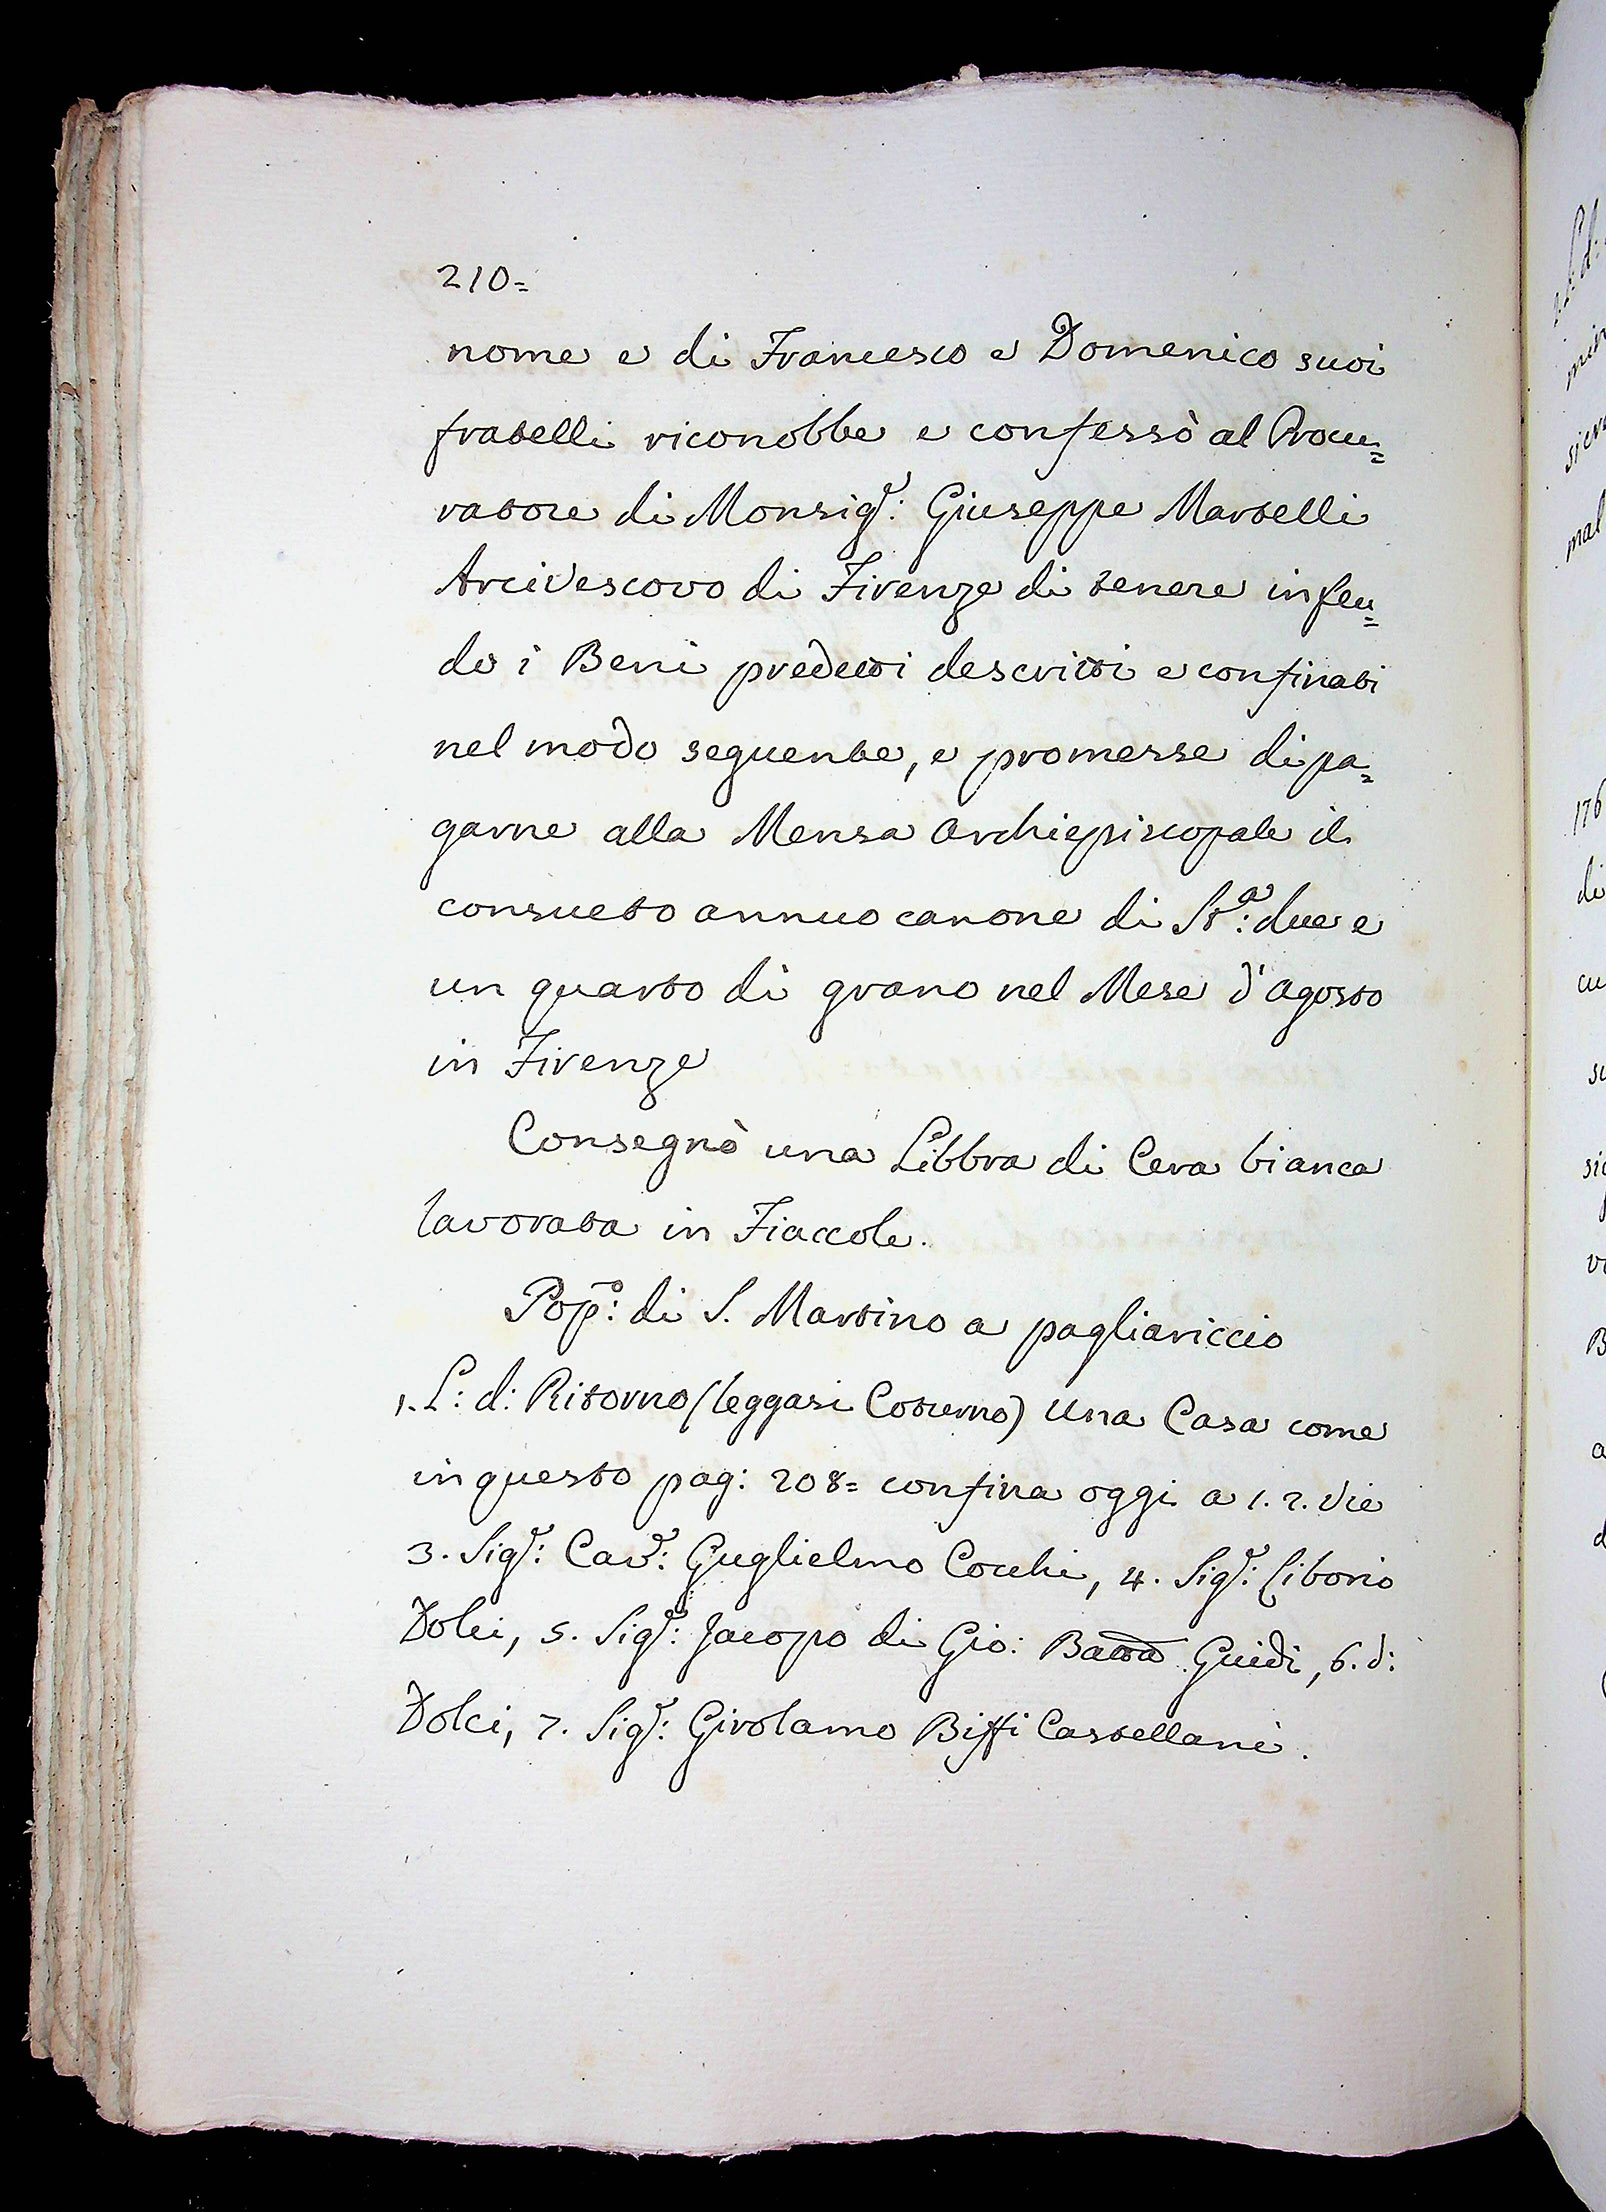 210=
nome e di Francesco e Domenico suoi
fratelli riconobbe e confessò al Procu=
ratore di Monsigr: Giuseppe Martelli
Arcivescovo di Firenze di tenere in feu=
do i Beni predetti descritti e confinati
nel modo seguente, e promesse di pa=
garne alla Mensa Archiepiscopale il
consueto annuo canone di Sta: due e
un quarto di grano nel Mese d'Agosto
in Firenze
Consegnò una Libbra di Cera bianca
lavorata in Fiaccole.
Popo: di S. Martino a pagliariccio
1. L: d: Ritorno (leggasi Coturno) Una Casa come
in questo pag: 208= confina oggi a 1. 2. Vie
3. Sigr: Cavr: Guglielmo Cocchi, 4. Sigr: Liborio
Dolci, 5. Sigr: Jacopo di Gio: Batta Guidi, 6. d:
Dolci, 7. Sigr: Girolamo Biffi Castellani.
176
di
mal